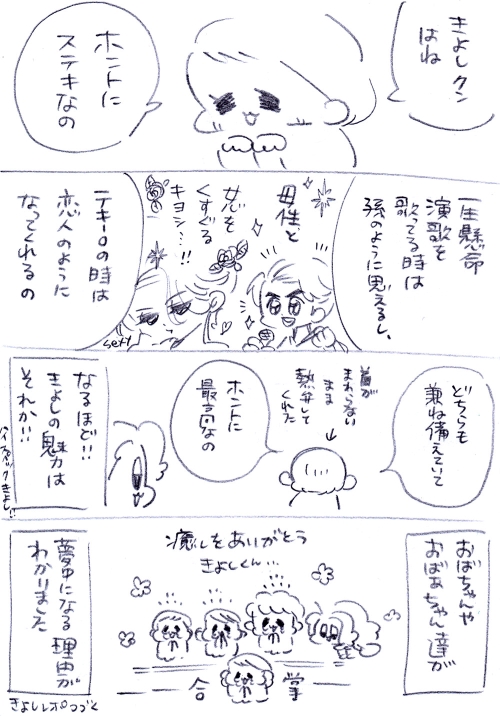 きよしクン
はね
ホントに
ステキなの
一生懸命
演歌を
歌ってる時は
孫のように思えるし、
母性と
女心を
くすぐる
キヨシ…!!
テキーロの時は
恋人のように
なってくれるの
sexy
どちらも
兼ね備えていて
首が
まわらない
まま
熱弁して
くれた
ホントに
最高なの
なるほど!!
きよしの魅力は
それか!!
ハイスペックきよし!!
おばちゃんや
おばあちゃん達が
癒しをありがとう
きよしくん…
合掌
夢中になる理由が
わかりました
きよしレポつづく